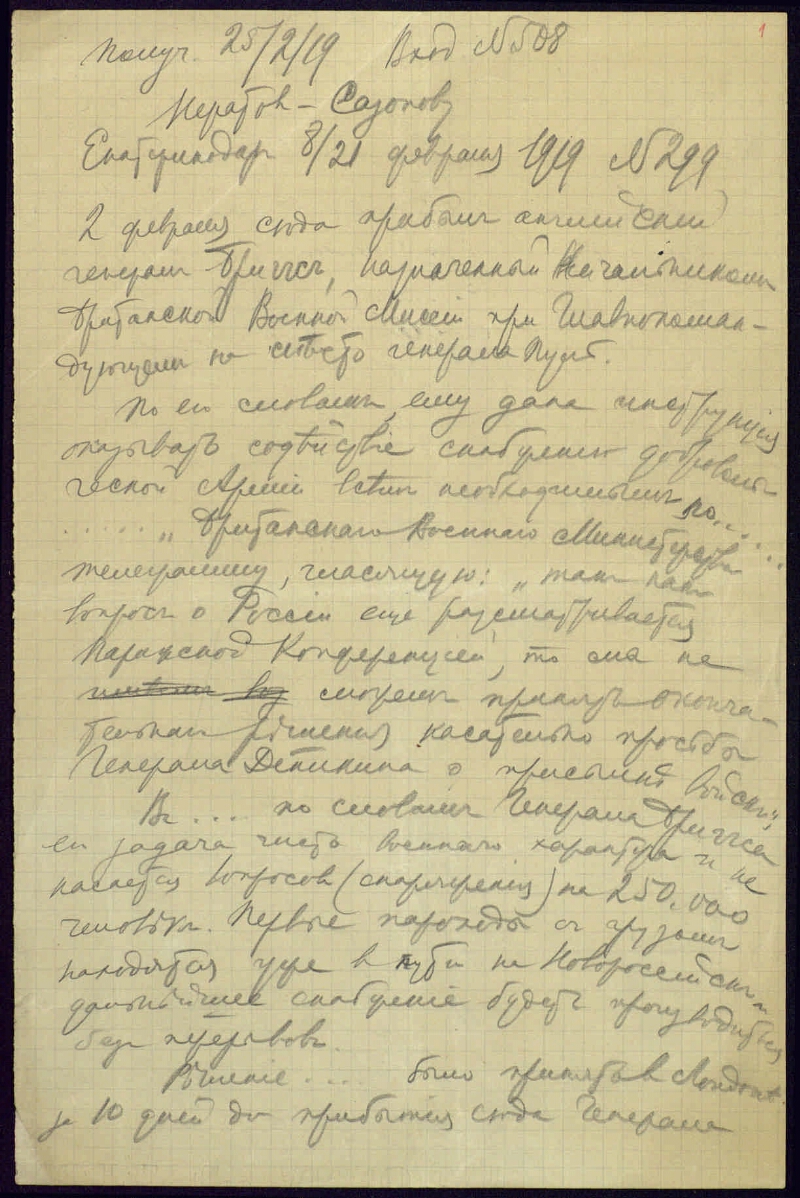 1
Получ. 25/2/19 Вход № 508
Нератов – Сазонову
Екатеринодар 8/21 февраля 1919 № 299
2 февраля сюда прибыл английский
генерал Бриггс, назначенный Начальником
Британской Военной Миссіи при Главнокоман-
дующем на мѣсто генерала Пуля.
По его словам, ему дана инструкція
оказывать содѣйствіе снабженію Доброволь-
ческой Арміи всѣм необходимым, но....
...... „Британскаго Военнаго Министерства
телеграмму, гласящую: „так как
вопрос о Россіи еще разсматривается
Парижской Конференціей, то мы не
сможем принять оконча-
тельнаго рѣшенія касательно просьбы
Генерала Деникина о присылкѣ войск".
В ... по словам Генерала Бриггса
его задача чисто военнаго характера и не
касается вопросов (снаряженія) на 250.000
человѣк. Первые пароходы с грузом
находятся уже в пути на Новороссійск и
дальнѣйшее снабженіе будет производиться
без перерывов.
Рѣшеніе ... было принято в Лондонѣ
за 10 дней до прибытія сюда Генерала